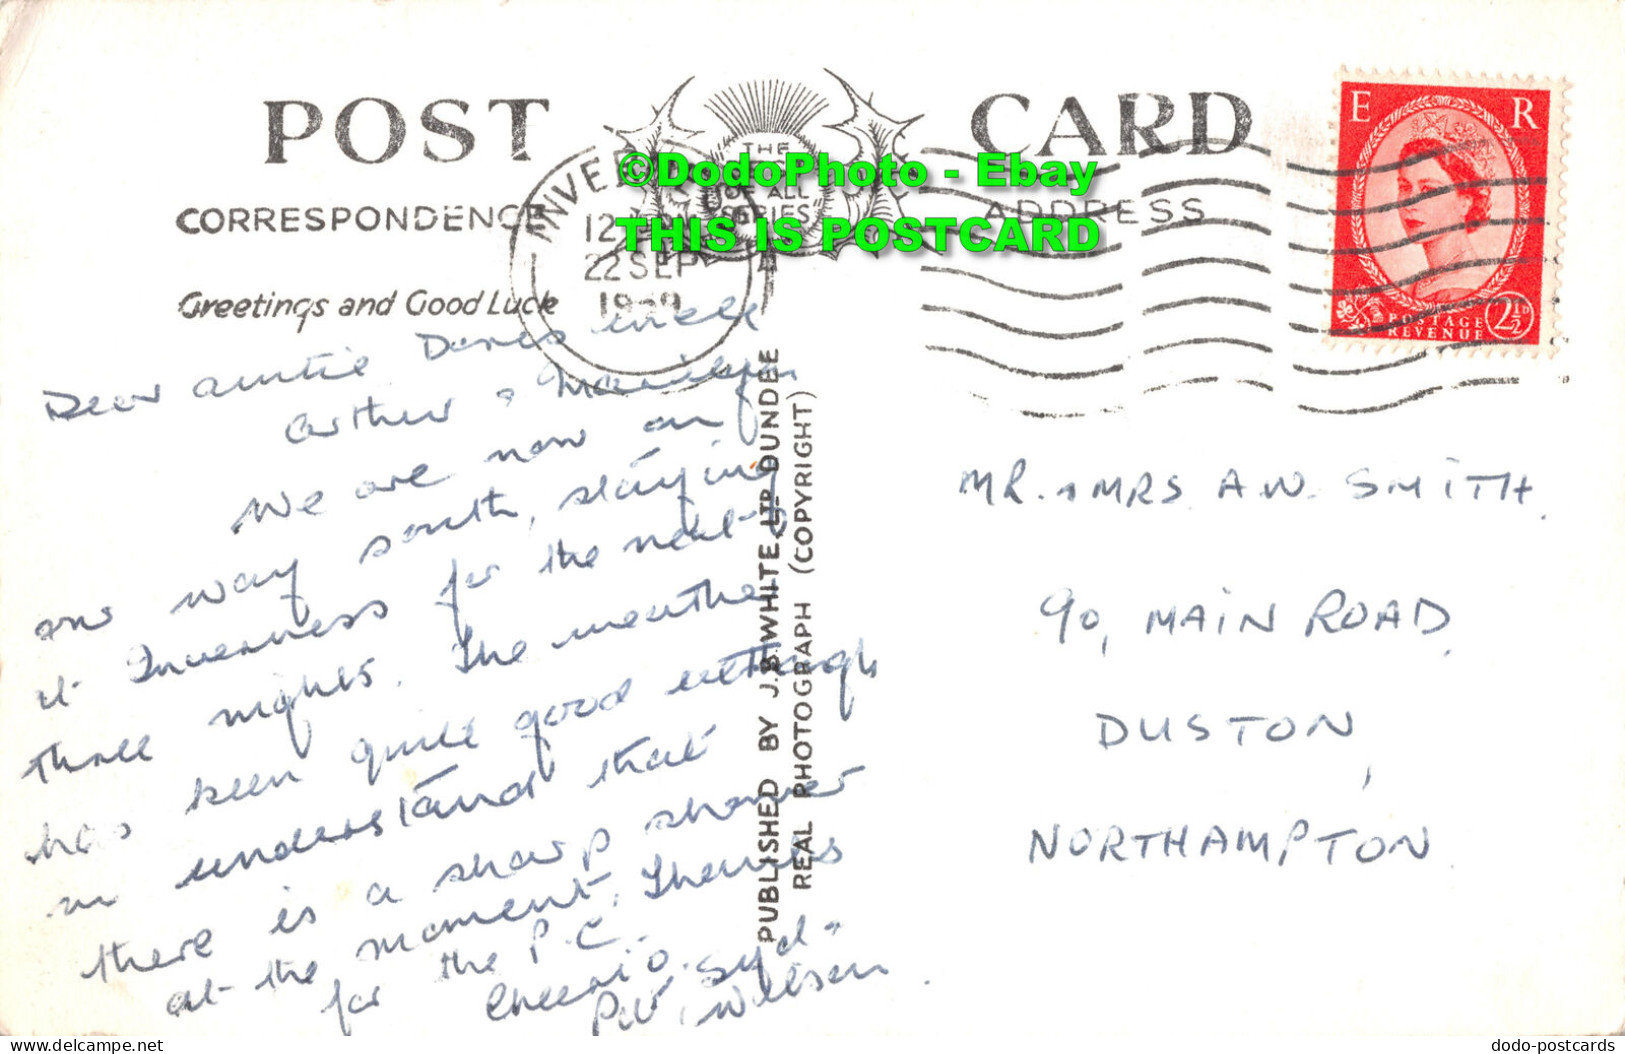 POST CARD
THE
OF ALL
SERIES
CORRESPONDENCE
ADDRESS
Greetings and Good Luck
INVERN
12
22 SEP
1959
E R
POSTAGE
REVENUE
2½D
©DodoPhoto - Ebay
THIS IS POSTCARD
Dear Auntie Doris Uncle
Arthur & Marilyn
We are now on
our way south, staying
at Inverness for the next
three nights. The weather
has been quite good although
understand that
there is a sharp shower
at the moment. Thanks
for the P.C.
Cheerio. Syd -
Wilson
PUBLISHED BY J.B. WHITE LTD DUNDEE
REAL PHOTOGRAPH (COPYRIGHT)
MR. & MRS A.W. SMITH.
90, MAIN ROAD,
DUSTON,
NORTHAMPTON
dodo-postcards